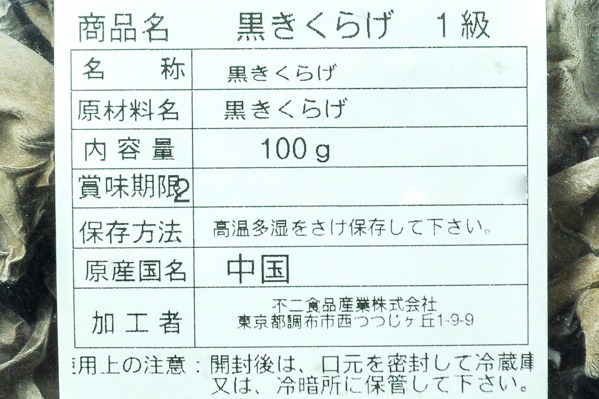 商品名 黒きくらげ 1級
名称 黒きくらげ
原材料名 黒きくらげ
内容量 100g
賞味期限2
保存方法 高温多湿をさけ保存して下さい。
原産国名 中国
加工者 不二食品産業株式会社
東京都調布市西つつじヶ丘1-9-9
使用上の注意：開封後は、口元を密封して冷蔵庫
又は、冷暗所に保管して下さい。